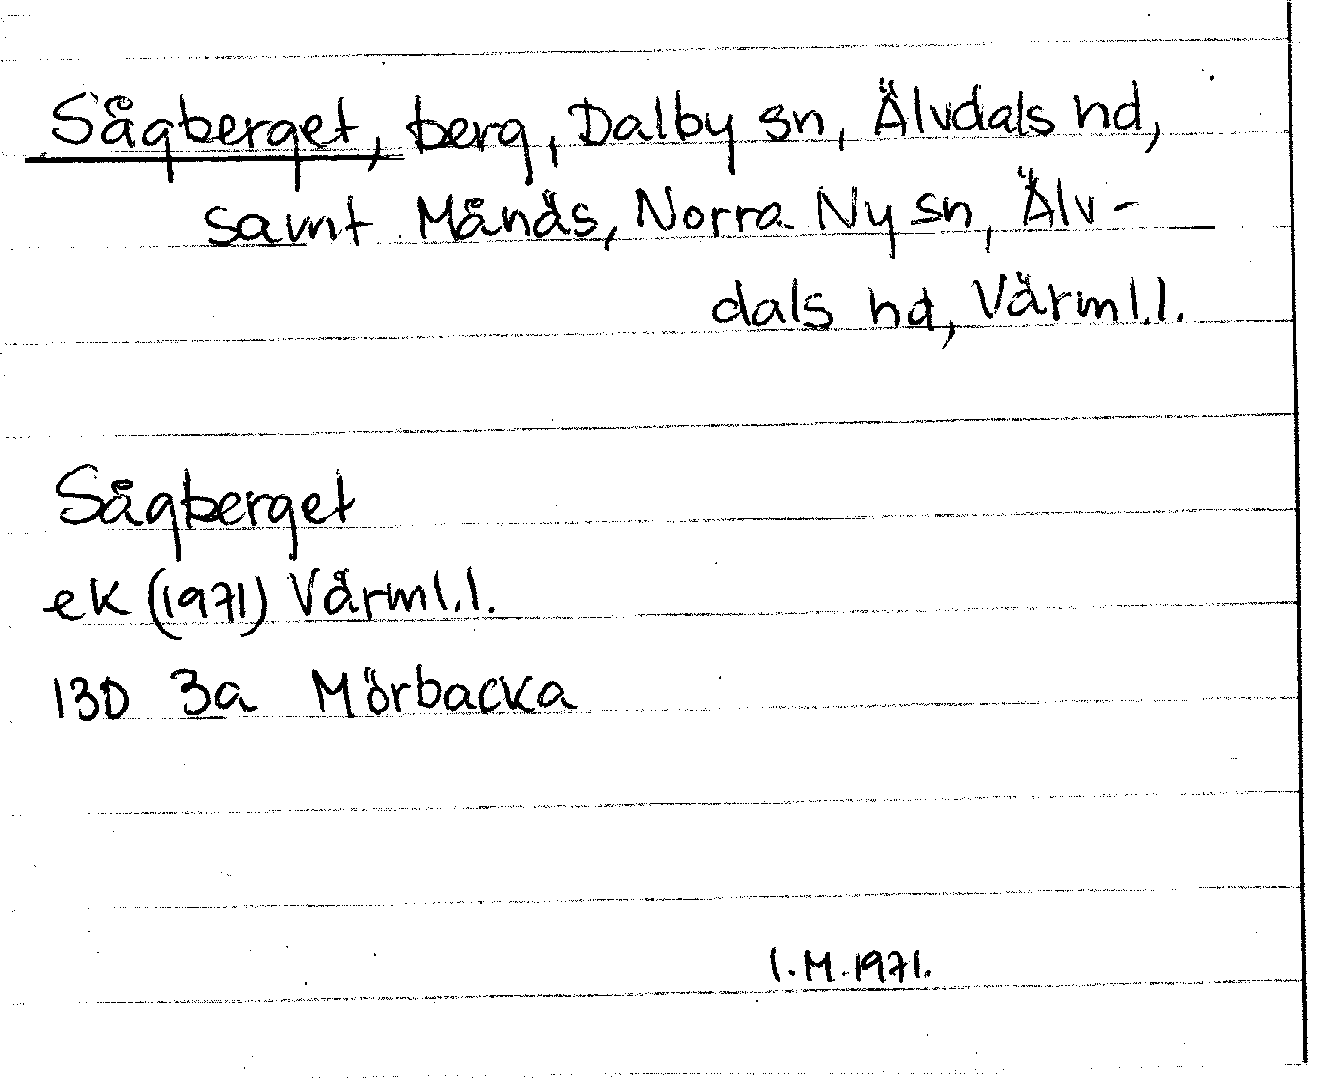 Sågberget, berg, Dalby sn, Älvdals hd,
samt Månäs, Norra Ny sn, Älv-
dals hd, Värml.l.
Sågberget
ek (1971) Värml.l.
13D 3a Mörbacka
I.M.1971.